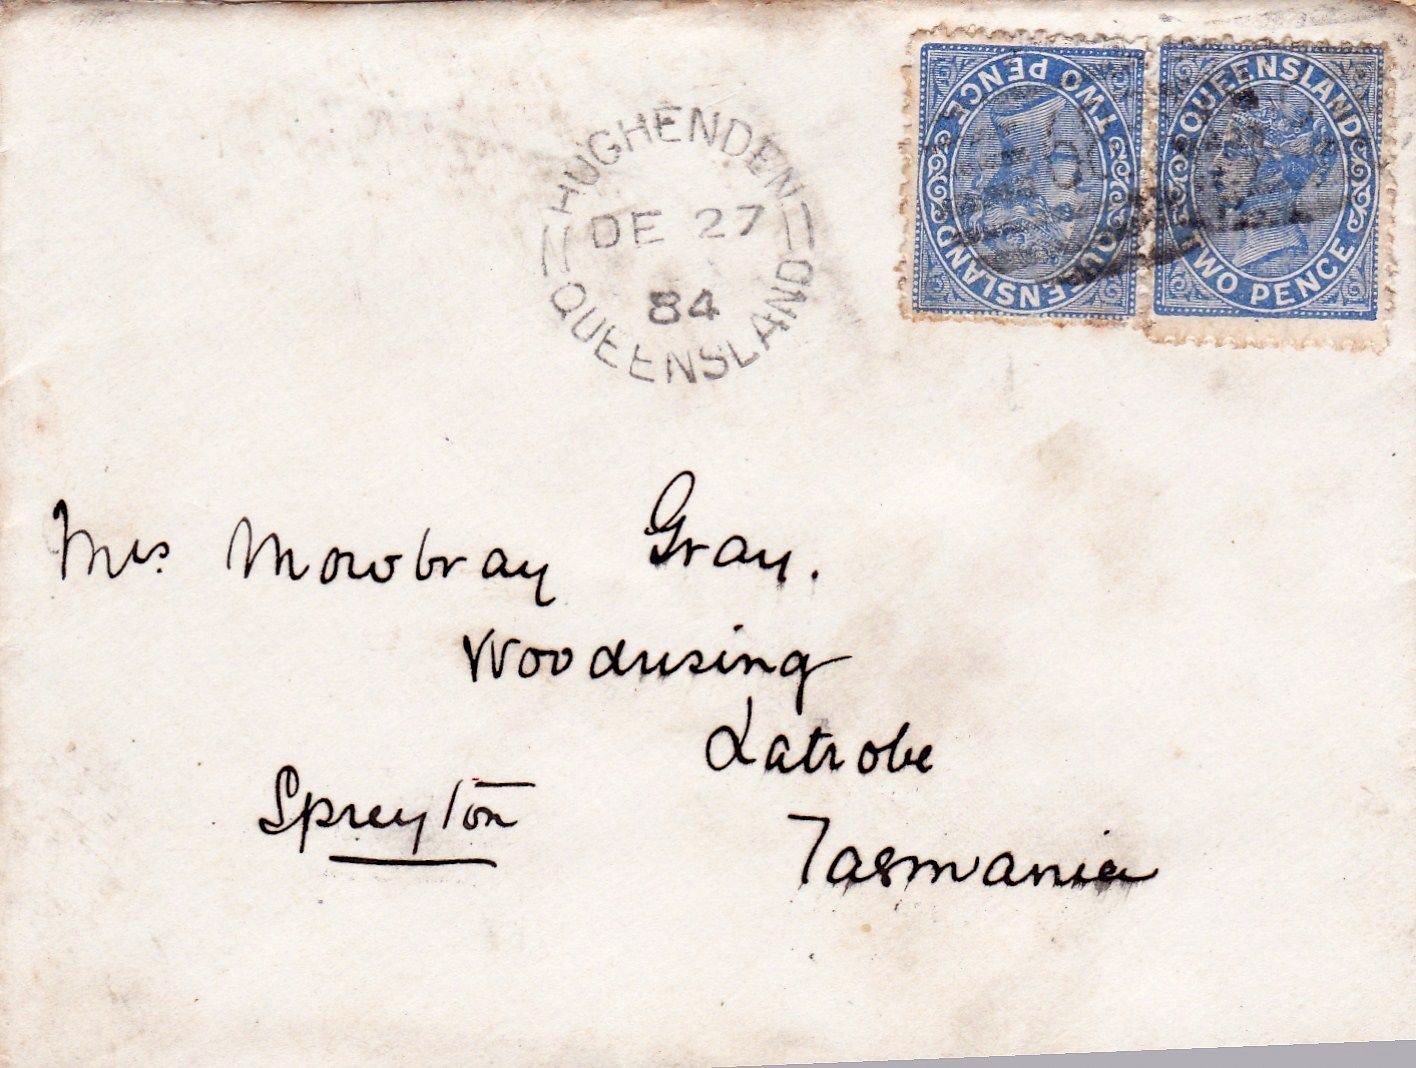 HUGHENDEN
DE 27
84
QUEENSLAND
TWO PENCE
QUEENSLAND
QUEENSLAND
TWO PENCE
Mrs. Mowbray Gray.
Woodrising
Latrobe
Spreyton
Tasmania